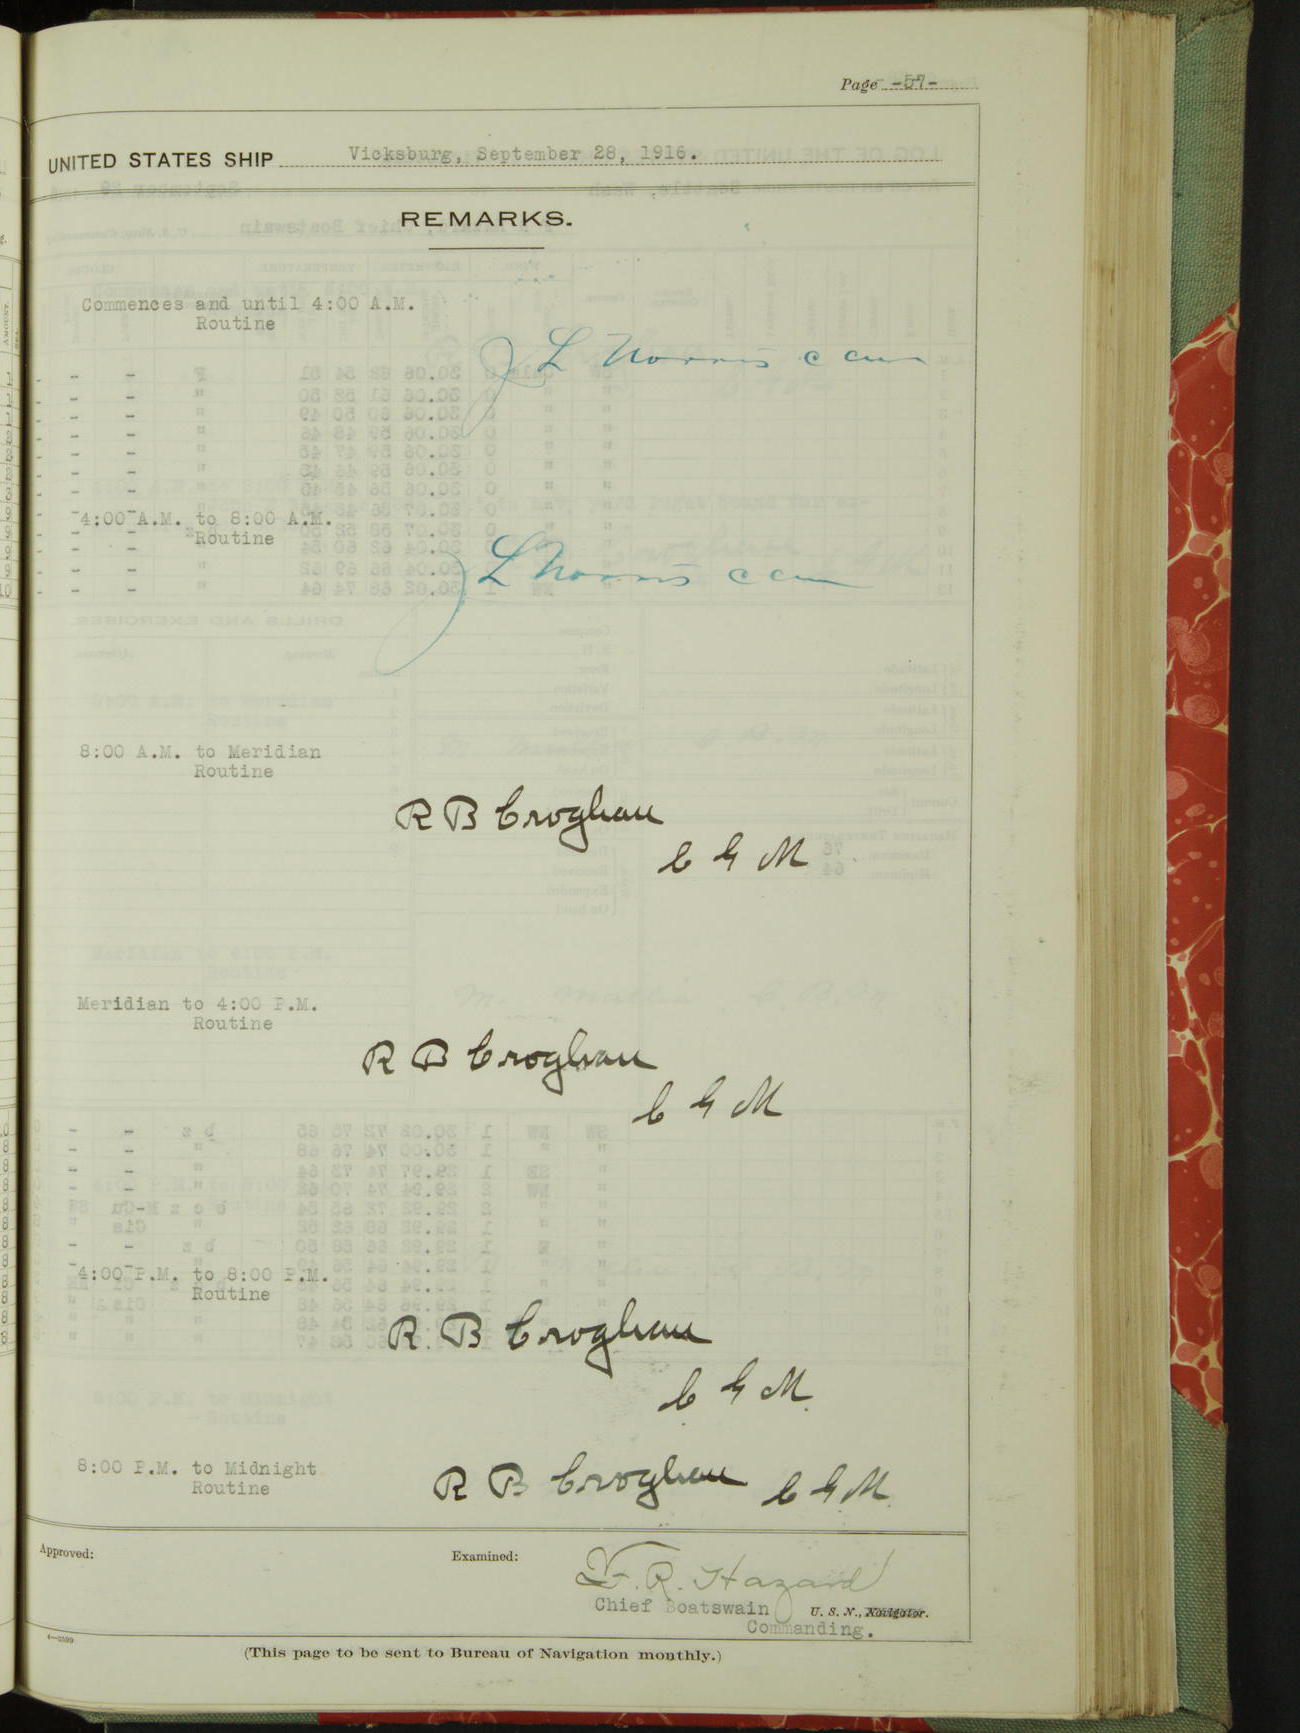 Page -57-
UNITED STATES SHIP Vicksburg, September 28, 1916.
REMARKS.
Commences and until 4:00 A.M.
Routine
J L Norris c cm
4:00 A.M. to 8:00 A.M.
Routine
J L Norris c cm
8:00 A.M. to Meridian
Routine
R B Croghan
C G M
Meridian to 4:00 P.M.
Routine
R B Croghan
C G M
4:00 P.M. to 8:00 P.M.
Routine
R B Croghan
C G M
8:00 P.M. to Midnight
Routine
R B Croghan C G M
Approved:
Examined:
F. R. Hazard
Chief Boatswain U. S. N., Navigator.
Commanding.
4—2599
(This page to be sent to Bureau of Navigation monthly.)